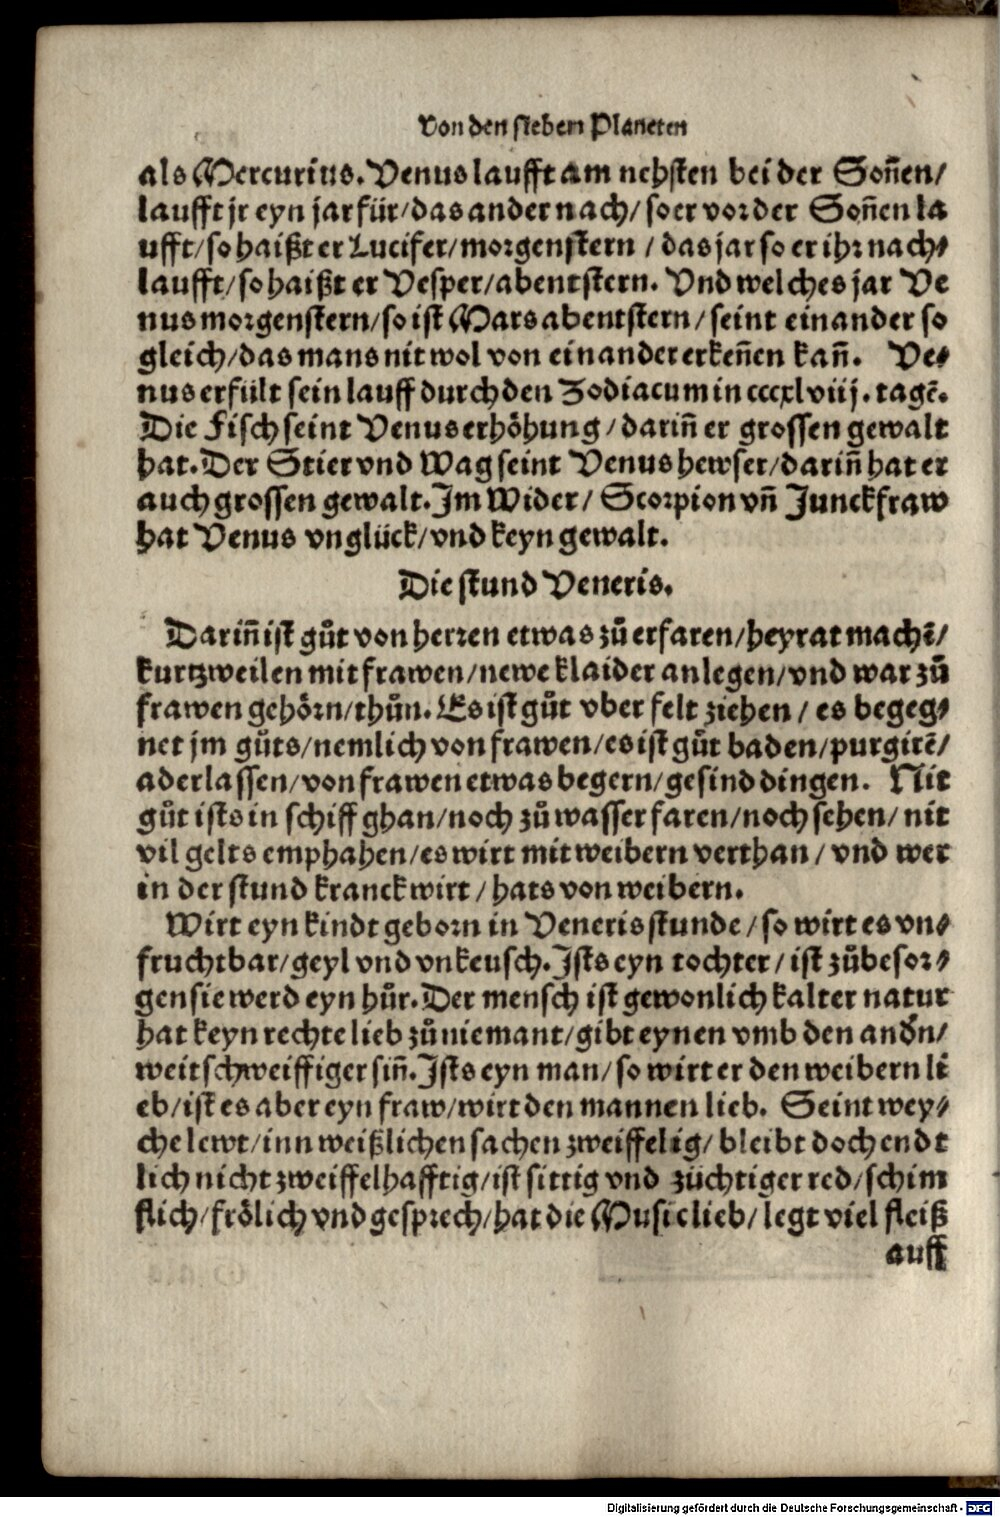 Von den sieben Planeten
als Mercurius. Venus laufft am nehsten bei der Soñen/
laufft jr eyn jar für/das ander nach/ so er vor der Soñen la
ufft/so haißt er Lucifer/morgenstern / das jar so er ihr nach⸗
laufft/so haißt er Vesper/abentstern. Vnd welches jar Ve
nus morgenstern/so ist Mars abentstern/seint einander so
gleich/das mans nit wol von einander erkeñen kañ. Ve⸗
nus erfült sein lauff durch den Zodiacum in cccxlviij. tagē.
Die Fisch seint Venus erhöhung/dariñ er grossen gewalt
hat. Der Stier vnd Wag seint Venus hewser/dariñ hat er
auch grossen gewalt. Im Wider/ Scorpion vñ Junckfraw
hat Venus vnglück/vnd keyn gewalt.
Die stund Veneris.
Dariñ ist gůt von herren etwas zů erfaren/heyrat machē/
kurtzweilen mit frawen/newe klaider anlegen/vnd war zů
frawen gehörn/thůn. Es ist gůt vber felt ziehen/ es begeg⸗
net jm gůts/nemlich von frawen/es ist gůt baden/purgirē/
aderlassen/von frawen etwas begern/gesind dingen. Nit
gůt ists in schiff ghan/noch zů wasser faren/noch sehen/ nit
vil gelts emphahen/es wirt mit weibern verthan/ vnd wer
in der stund kranck wirt/hats von weibern.
Wirt eyn kindt geborn in Veneris stunde/so wirt es vn⸗
fruchtbar/geyl vnd vnkeusch. Ists eyn tochter/ist zůbesor⸗
gen sie werd eyn hůr. Der mensch ist gewonlich kalter natur
hat keyn rechte lieb zů niemant/gibt eynen vmb den andn̄/
weitschweiffiger siñ. Ists eyn man/so wirt er den weibern li
eb/ist es aber eyn fraw/wirt den mannen lieb. Seint wey⸗
che lewt/inn weißlichen sachen zweiffelig/bleibt doch endt
lich nicht zweiffelhafftig/ist sittig vnd züchtiger red/schim
flich/frölich vnd gesprech/hat die Music lieb/legt viel fleiß
auff
Digitalisierung gefördert durch die Deutsche Forschungsgemeinschaft - DFG